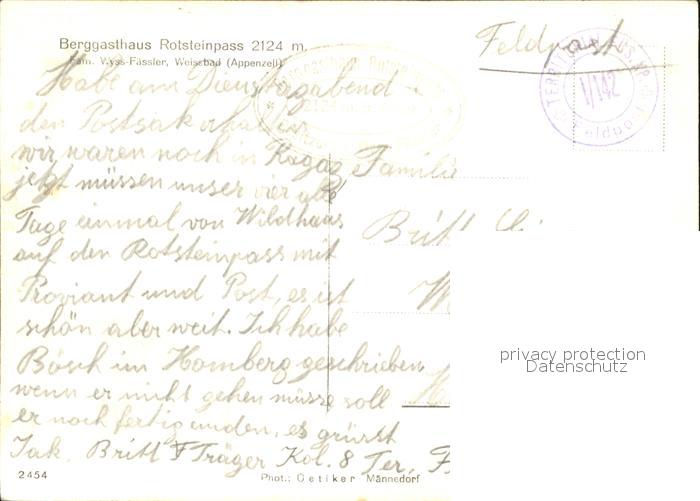 Berggasthaus Rotsteinpass 2124 m.
Fam. Wyss-Fässler, Weissbad (Appenzell)
Feldpost
I/142
Feldpost
Habe am Dienstagabend
den Postsak erhalten
wir waren noch in Ragaz
jetzt müssen unser vier alle
Tage einmal von Wildhaus
auf den Rotsteinpass mit
Proviant und Post, es ist
schön aber weit. Ich habe
Bösch im Homberg geschrieben
wenn er nicht gehen müsse soll
er noch fertig, es grüsst
Jak. Britt Träger Kol. 8 Ter.
Familie
Britt
privacy protection
Datenschutz
2454
Phot.: Oetiker Männedorf